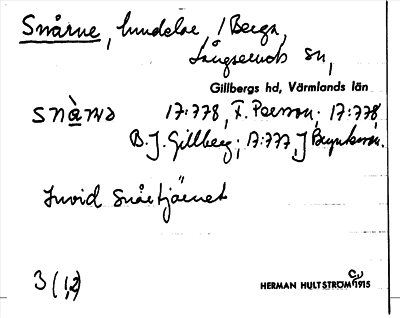 Snårne, hundelse, / Berga,
Långseruds sn,
Gillbergs hd, Värmlands län
17:778, F. Persson; 17:778,
B. J. Gillberg; 17:777, J
Invid Snårtjärnet
3 (1,2)
HERMAN HULTSTRÖM 1915